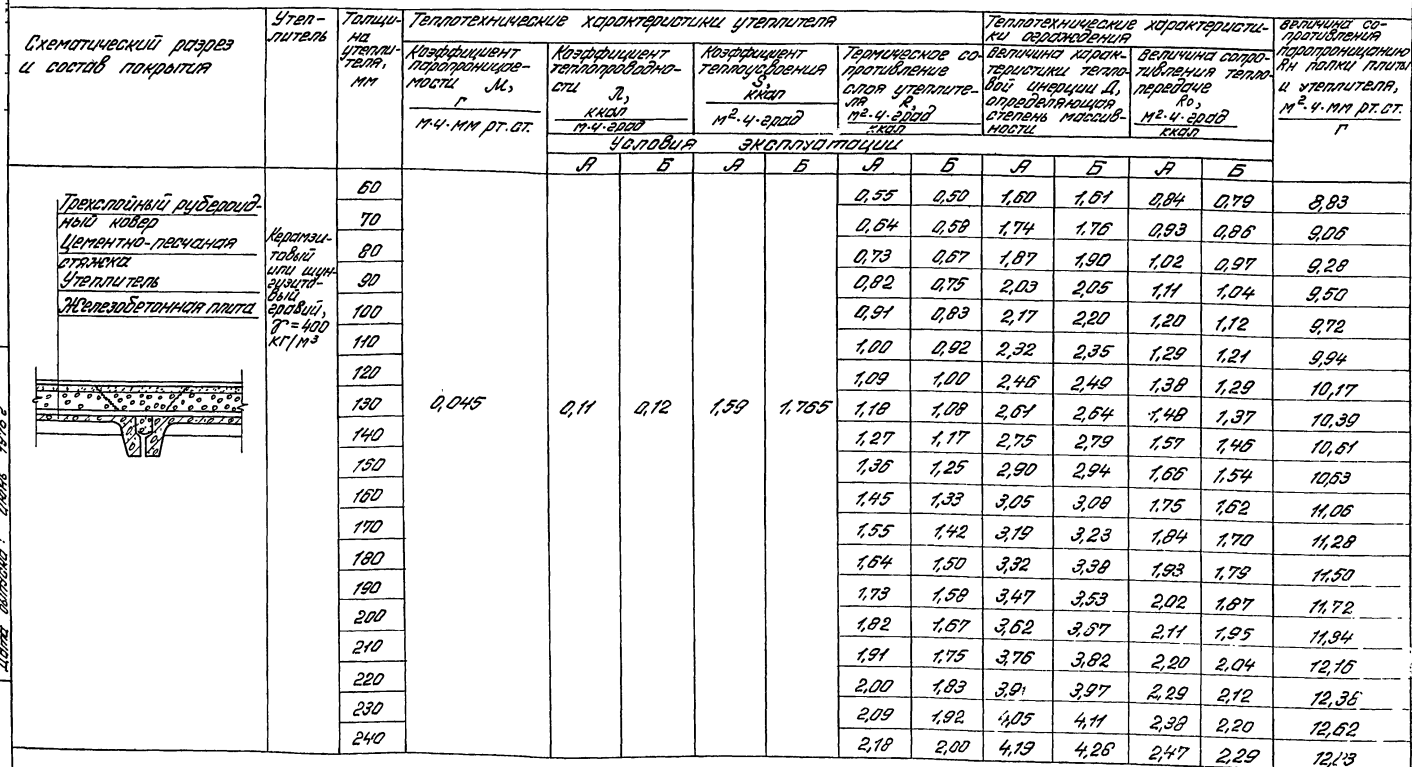 Схематический разрез и состав покрытия
Утеплитель
Толщина утеплителя, мм
Теплотехнические характеристики утеплителя
Коэффициент паропроницаемости М, г / м·ч·мм рт.ст.
Коэффициент теплопроводности λ, ккал / м·ч·град
Коэффициент теплоусвоения S, ккал / м²·ч·град
Термическое сопротивление слоя утеплителя R, м²·ч·град / ккал
Теплотехнические характеристики ограждения
Величина характеристики тепловой инерции Д, определяющая степень массивности
Величина сопротивления теплопередаче R₀, м²·ч·град / ккал
Величина сопротивления паропроницанию Rн полки плиты и утеплителя, м²·ч·мм рт.ст. / г
Условия эксплуатации
А Б А Б А Б А Б А Б
Трехслойный рубероидный ковер
Цементно-песчаная стяжка
Утеплитель
Железобетонная плита
Керамзитовый или шунгизитовый гравий, γ=400 кг/м³
0,045 0,11 0,12 1,59 1,765
60 0,55 0,50 1,60 1,61 0,84 0,79 8,83
70 0,64 0,58 1,74 1,76 0,93 0,86 9,06
80 0,73 0,67 1,87 1,90 1,02 0,97 9,28
90 0,82 0,75 2,03 2,05 1,11 1,04 9,50
100 0,91 0,83 2,17 2,20 1,20 1,12 9,72
110 1,00 0,92 2,32 2,35 1,29 1,21 9,94
120 1,09 1,00 2,46 2,49 1,38 1,29 10,17
130 1,18 1,08 2,61 2,64 1,48 1,37 10,39
140 1,27 1,17 2,75 2,79 1,57 1,46 10,61
150 1,36 1,25 2,90 2,94 1,66 1,54 10,63
160 1,45 1,33 3,05 3,08 1,75 1,62 11,06
170 1,55 1,42 3,19 3,23 1,84 1,70 11,28
180 1,64 1,50 3,32 3,38 1,93 1,79 11,50
190 1,73 1,58 3,47 3,53 2,02 1,87 11,72
200 1,82 1,67 3,62 3,67 2,11 1,95 11,94
210 1,91 1,75 3,76 3,82 2,20 2,04 12,16
220 2,00 1,83 3,91 3,97 2,29 2,12 12,36
230 2,09 1,92 4,05 4,11 2,38 2,20 12,62
240 2,18 2,00 4,19 4,26 2,47 2,29
Дата выпуска: июнь 1976 г